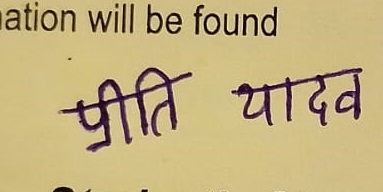 ation will be found
प्रीति यादव